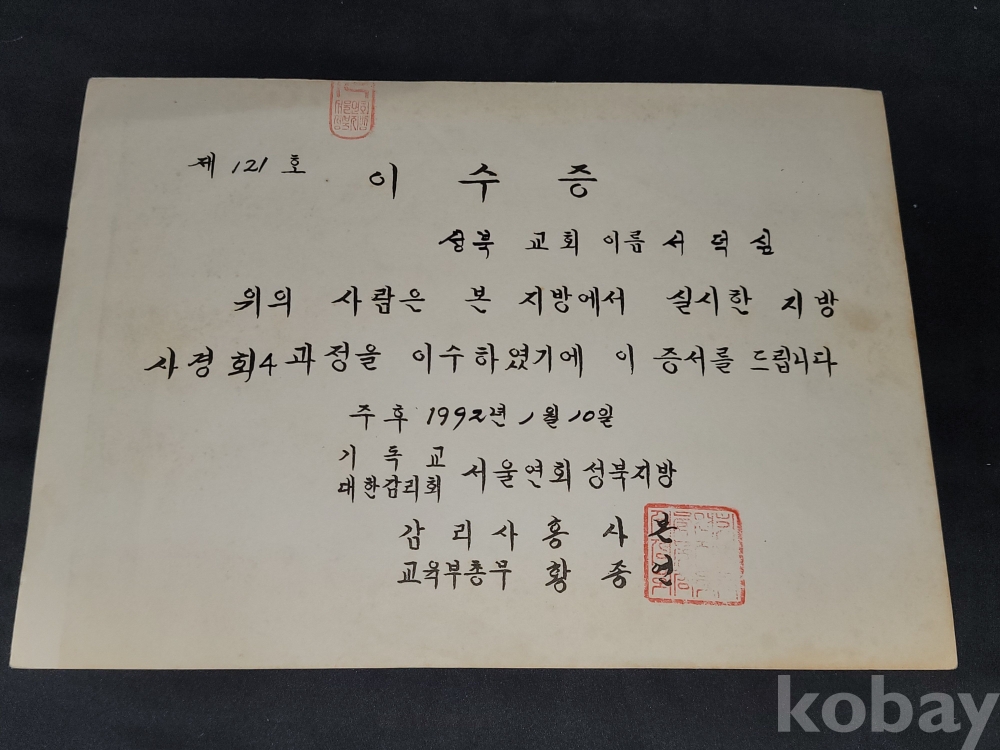 제 121 호
이 수 증
성북 교회 이름 서 덕 심
위의 사람은 본 지방에서 실시한 지방
사경회4과정을 이수하였기에 이 증서를 드립니다
주후 1992년 1월 10일
기 독 교
대한감리회 서울연회 성북지방
감 리 사 홍 사 본
교육부총무 황 종 연
kobay